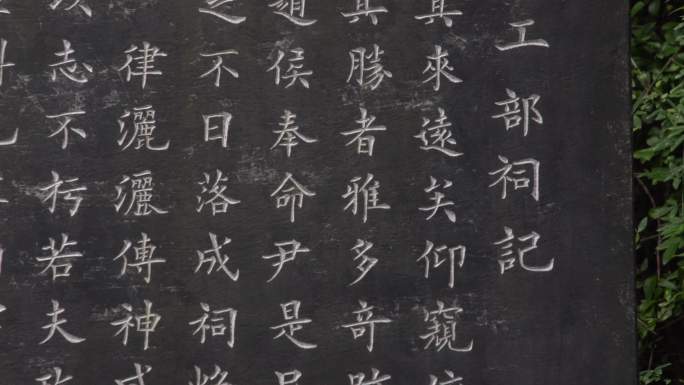 工部祠記
其來遠矣仰窺
其勝者雅多奇
道侯奉命尹是
之不日落成祠
律灑灑傳神
志不朽若夫